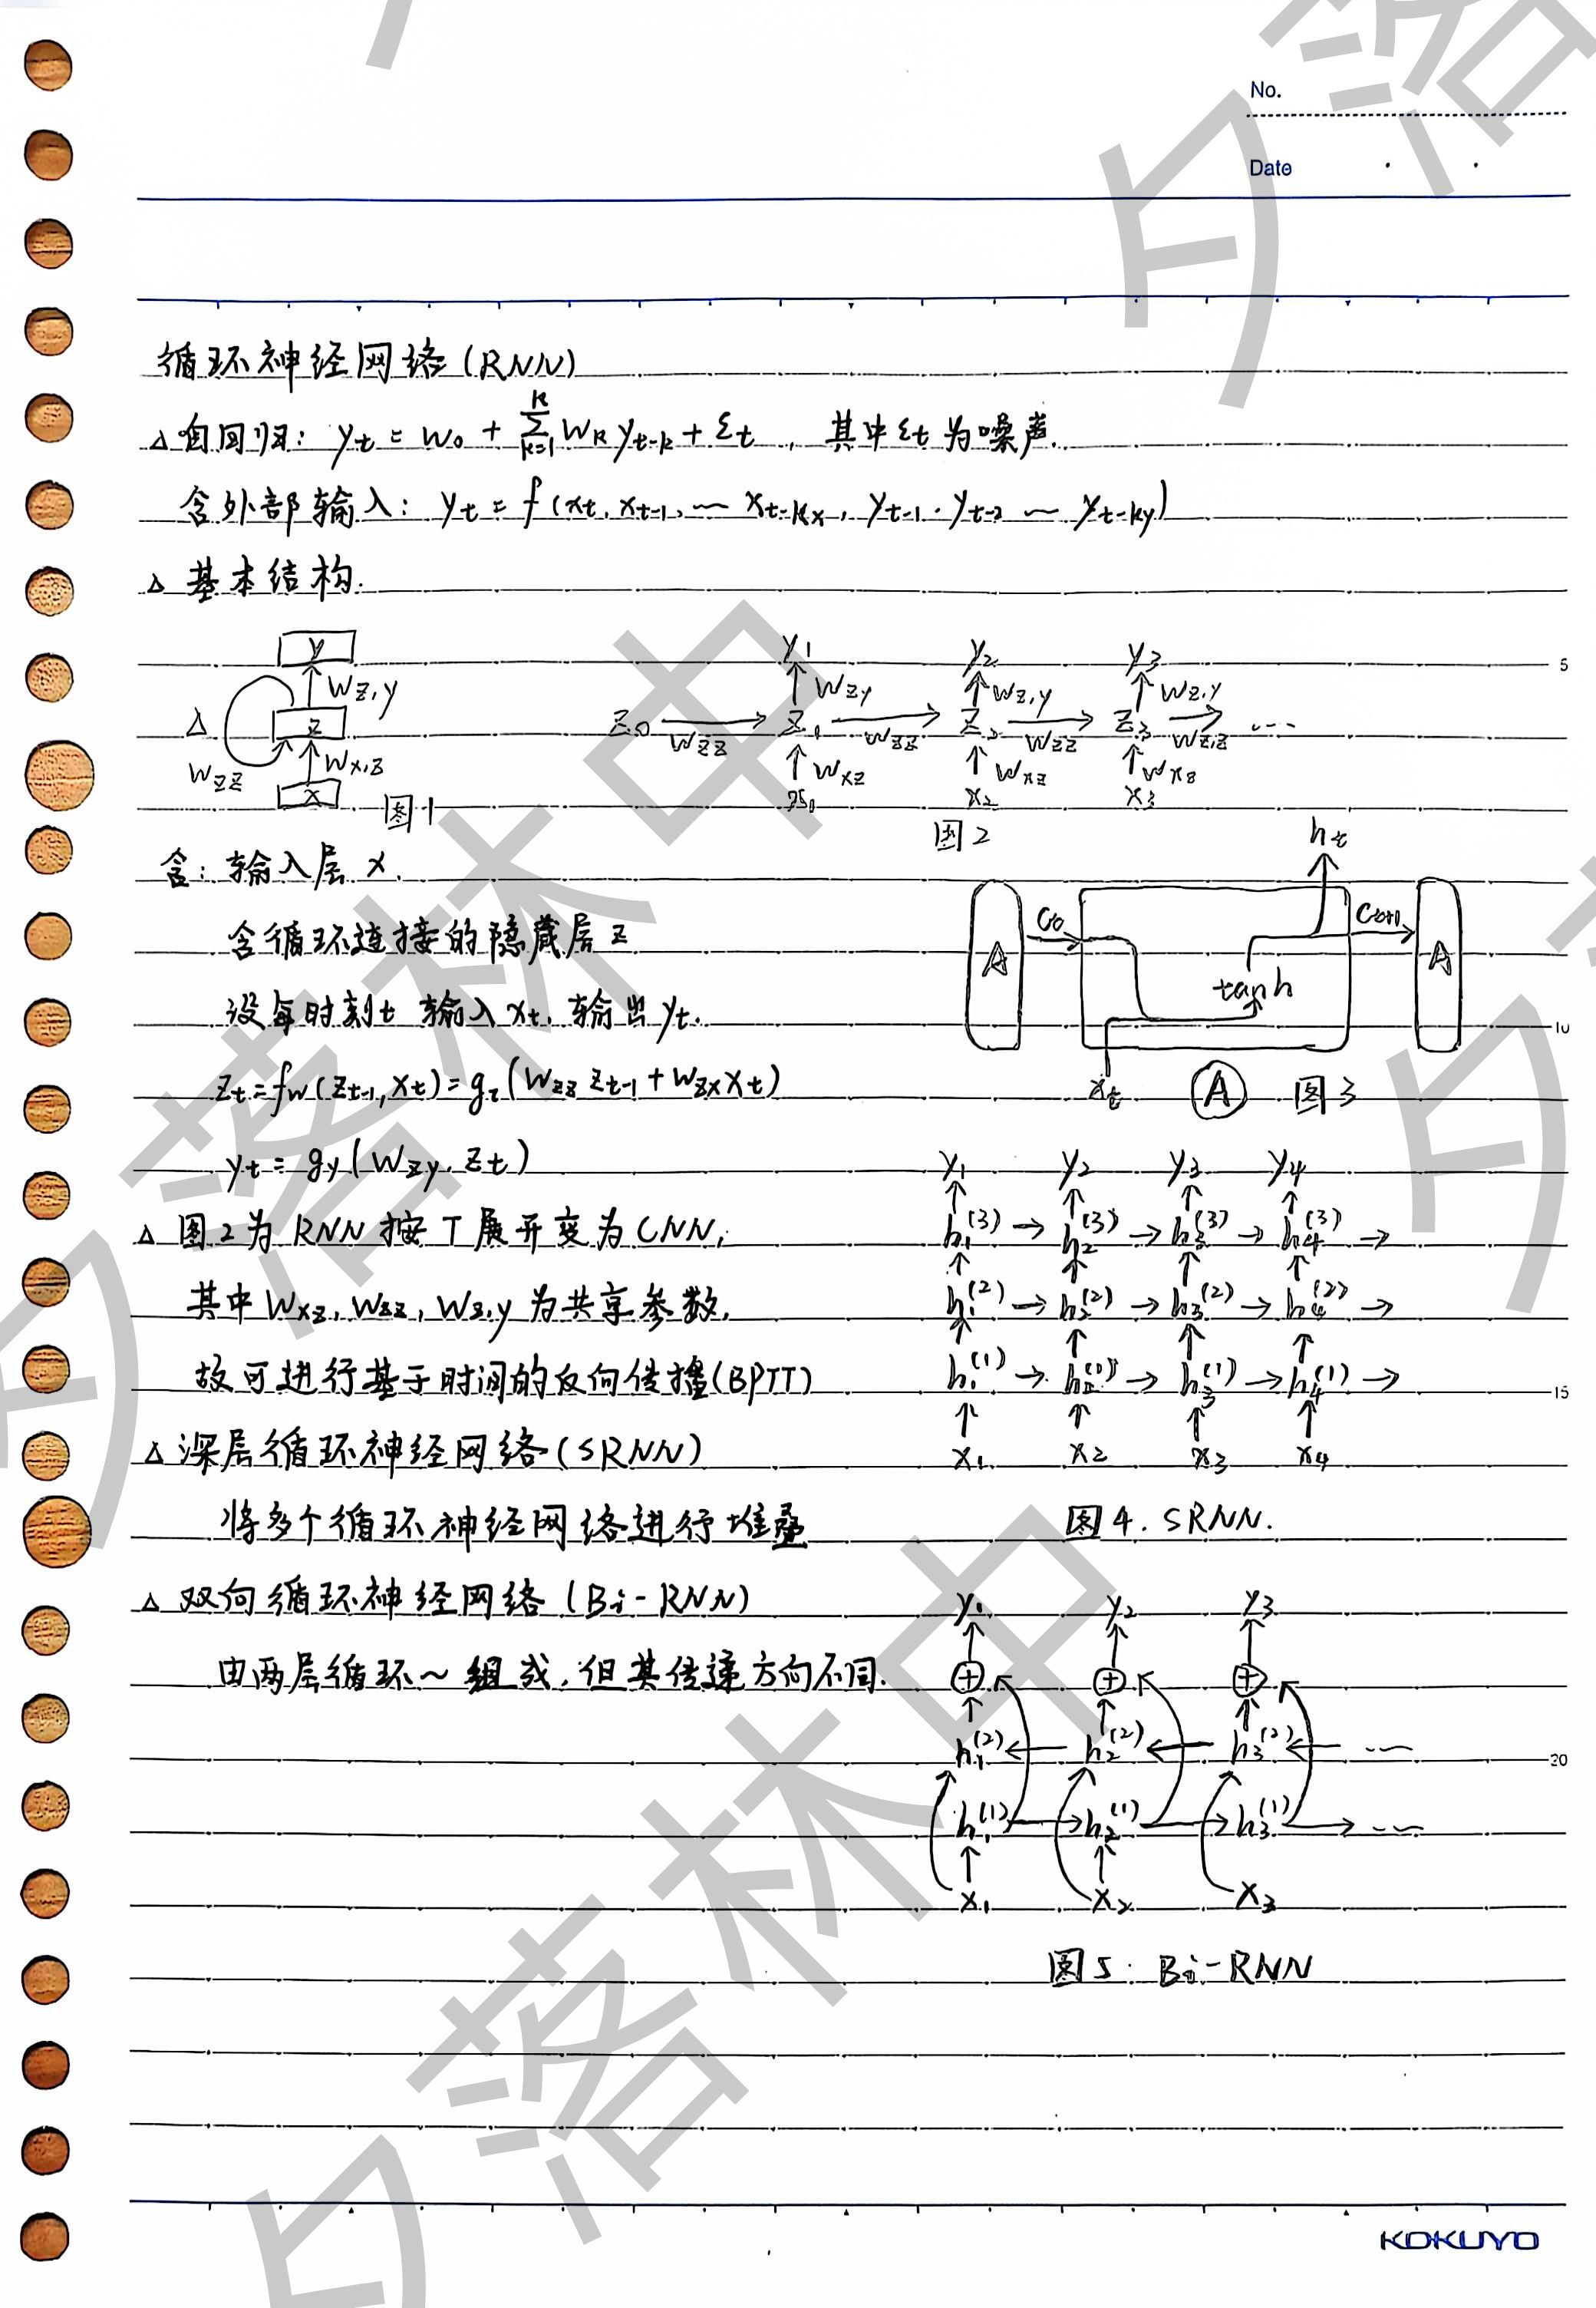 No.
Date
循环神经网络(RNN)
△自回归: yt = w0 + Σ(k=1..K) wk yt-k + εt , 其中εt为噪声.
含外部输入: yt = f(xt, xt-1, ⋯ xt-kx, yt-1, yt-2 ⋯ yt-ky)
△ 基本结构.
y
Wz,y
△ z
Wzz Wx,z
x 图1
y1 y2 y3
Wzy Wz,y Wz,y
z0 → z1 → z2 → z3 → ⋯
Wzz Wzz Wzz Wz,z
Wxz Wxz Wxz
x2 x3
图2
含: 输入层 x.
含循环连接的隐藏层 z
设每时刻t 输入xt, 输出yt.
zt = fw(zt-1, xt) = gz(Wzz zt-1 + Wzx xt)
yt = gy(Wzy. zt)
ht
A A
tanh
xt A 图3
△ 图2为 RNN 按 T 展开变为 CNN,
其中 Wxz, Wzz, Wz,y 为共享参数,
故可进行基于时间的反向传播(BPTT)
△ 深层循环神经网络(SRNN)
将多个循环神经网络进行堆叠
y1 y2 y3 y4
h1(3) → h2(3) → h3(3) → h4(3) →
h1(2) → h2(2) → h3(2) → h4(2) →
h1(1) → h2(1) → h3(1) → h4(1) →
x1 x2 x3 x4
图4. SRNN.
△ 双向循环神经网络(Bi-RNN)
由两层循环~组成, 但其传递方向不同.
y1 y2 y3
⊕ ⊕ ⊕
h1(2) ← h2(2) ← h3(2) ← ⋯
h1(1) → h2(1) → h3(1) → ⋯
x1 x2 x3
图5: Bi-RNN
5
10
15
20
KOKUYO
夕落林中
夕落林中